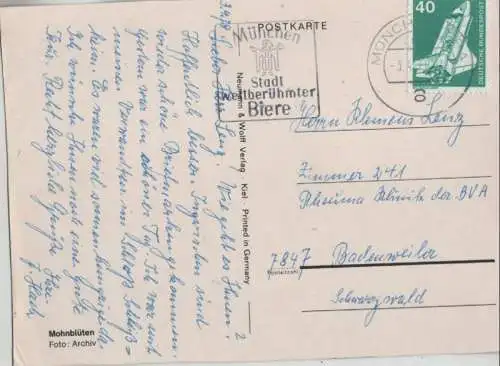 POSTKARTE
München
Stadt
weltberühmter
Biere
MÜNCH
40
DEUTSCHE BUNDESPOST
Lieber Herr Lenz! Wie geht es Ihnen?
Hoffentlich besser. Inzwischen sind
wieder schöne Briefmarken gekommen.
Gestern war ein schöner Tag. Ich war mit
meinen Verwandten im Schloß
heim. Es waren viel
Ich wünsche Ihnen noch eine gute
Kur. Recht herzliche Grüße Ihre
Neumann & Wolff Verlag · Kiel · Printed in Germany
2
Herrn Klemens Lenz
Zimmer 241
Rheuma Klinik der BVA
7847 Badenweiler
(Postleitzahl)
Schwarzwald
Mohnblüten
Foto: Archiv